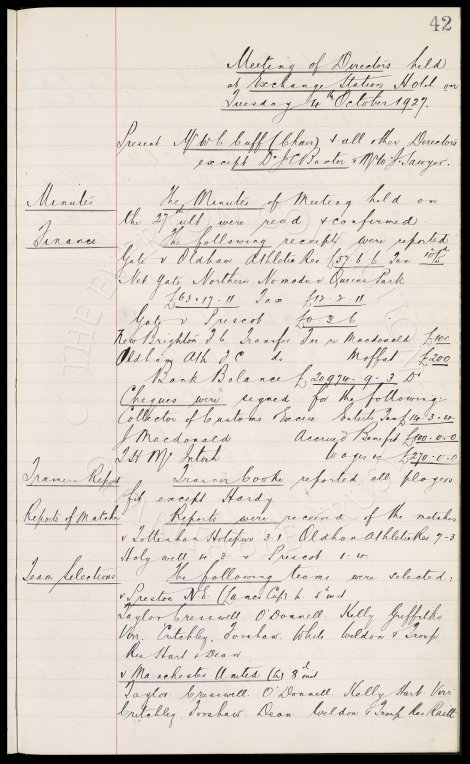 42
Meeting of Directors held
at Exchange Station Hotel on
Tuesday 4th October 1927.
Present Mr W C Cuff (Chair) & all other Directors
except Dr J C Baxter & Mr W J Sawyer.
Minutes The Minutes of Meeting held on
the 27th ult were read & confirmed
Finance The following receipts were reported
Gate v Oldham Athletic Res £57. 6. 6 Tax
Net Gate Northern Nomads v Queens Park
£63. 17. 11 Tax £12. 2. 11
Gate v Prescot £0. 3. 6
New Brighton F C Transfer Fee re Macdonald £100
Oldham Ath F C do Moffat £200
Bank Balance £20974. 9. 3 Dr
Cheques were signed for the following:-
Collector of Customs Excise Enterts Tax £14. 3. 4
J Macdonald Accrued Benefit £100. 0. 0
T H McIntosh Wages &c £270. 0. 0
Trainers Report Trainer Cooke reported all players
fit except Hardy
Reports of Matches Reports were received of the matches
v Tottenham Hotspur 3 1 Oldham Athletic Res 7-3
Holywell 4. 3 v Prescot 1. 4
Team Selections The following teams were selected:
v Preston N.E. (Lancs Cup) h 5th inst
Taylor Cresswell O'Donnell Kelly Griffiths
Virr. Critchley. Forshaw. White Weldon & Troup
Res Hart & Dean
v Manchester United (h) 8th inst
Taylor. Cresswell. O'Donnell. Kelly Hart. Virr
Critchley. Forshaw. Dean Weldon & Troup Res Raitt